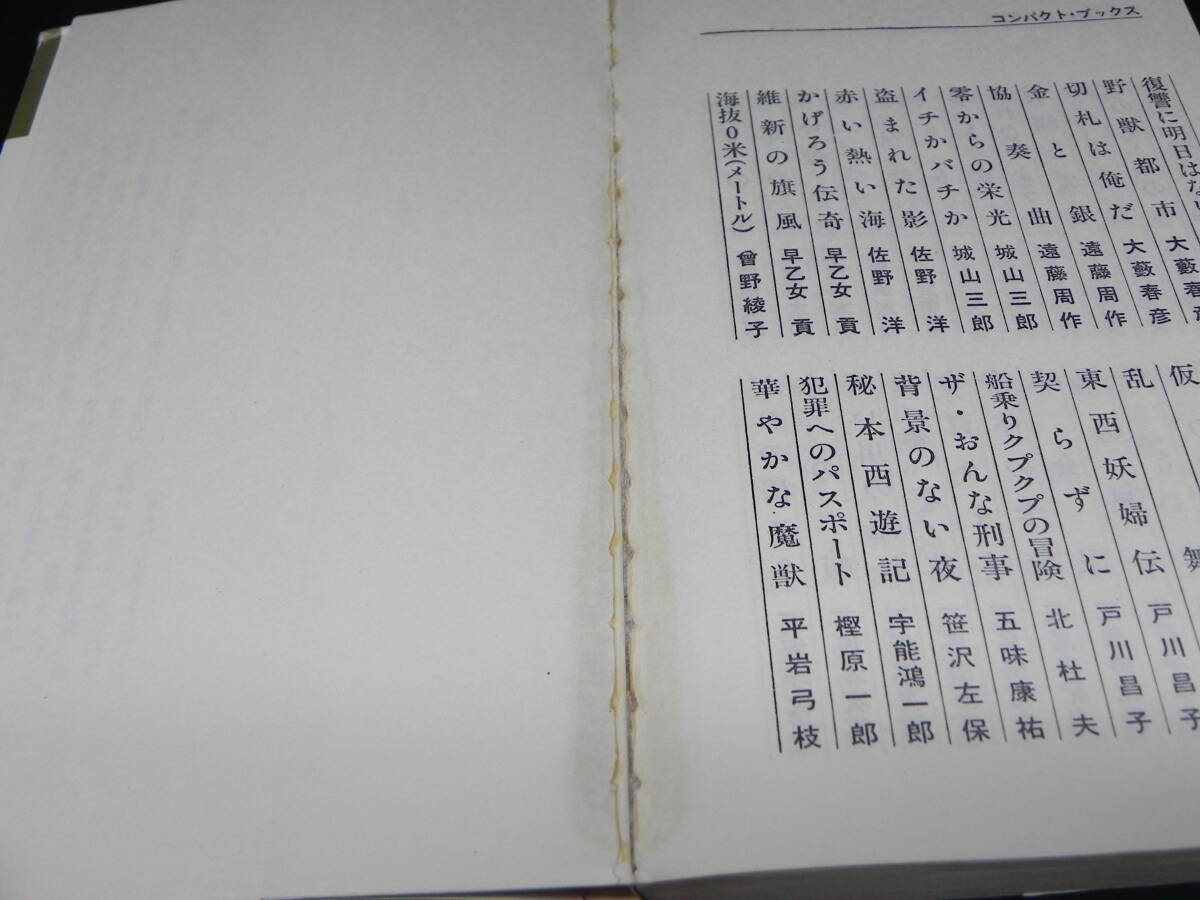 コンパクト・ブックス
復讐に明日はな
野獣都市 大藪春彦
切札は俺だ 大藪春彦
金と銀 遠藤周作
協奏曲 遠藤周作
零からの栄光 城山三郎
イチかバチか 城山三郎
盗まれた影 佐野洋
赤い熱い海 佐野洋
かげろう伝奇 早乙女貢
維新の旗風 早乙女貢
海抜0米(メートル) 曾野綾子
仮
乱舞
東西妖婦伝 戸川昌子
契らずに 戸川昌子
船乗りクプクプの冒険 北杜夫
ザ・おんな刑事 五味康祐
背景のない夜 笹沢左保
秘本西遊記 宇能鴻一郎
犯罪へのパスポート 樫原一郎
華やかな魔獣 平岩弓枝